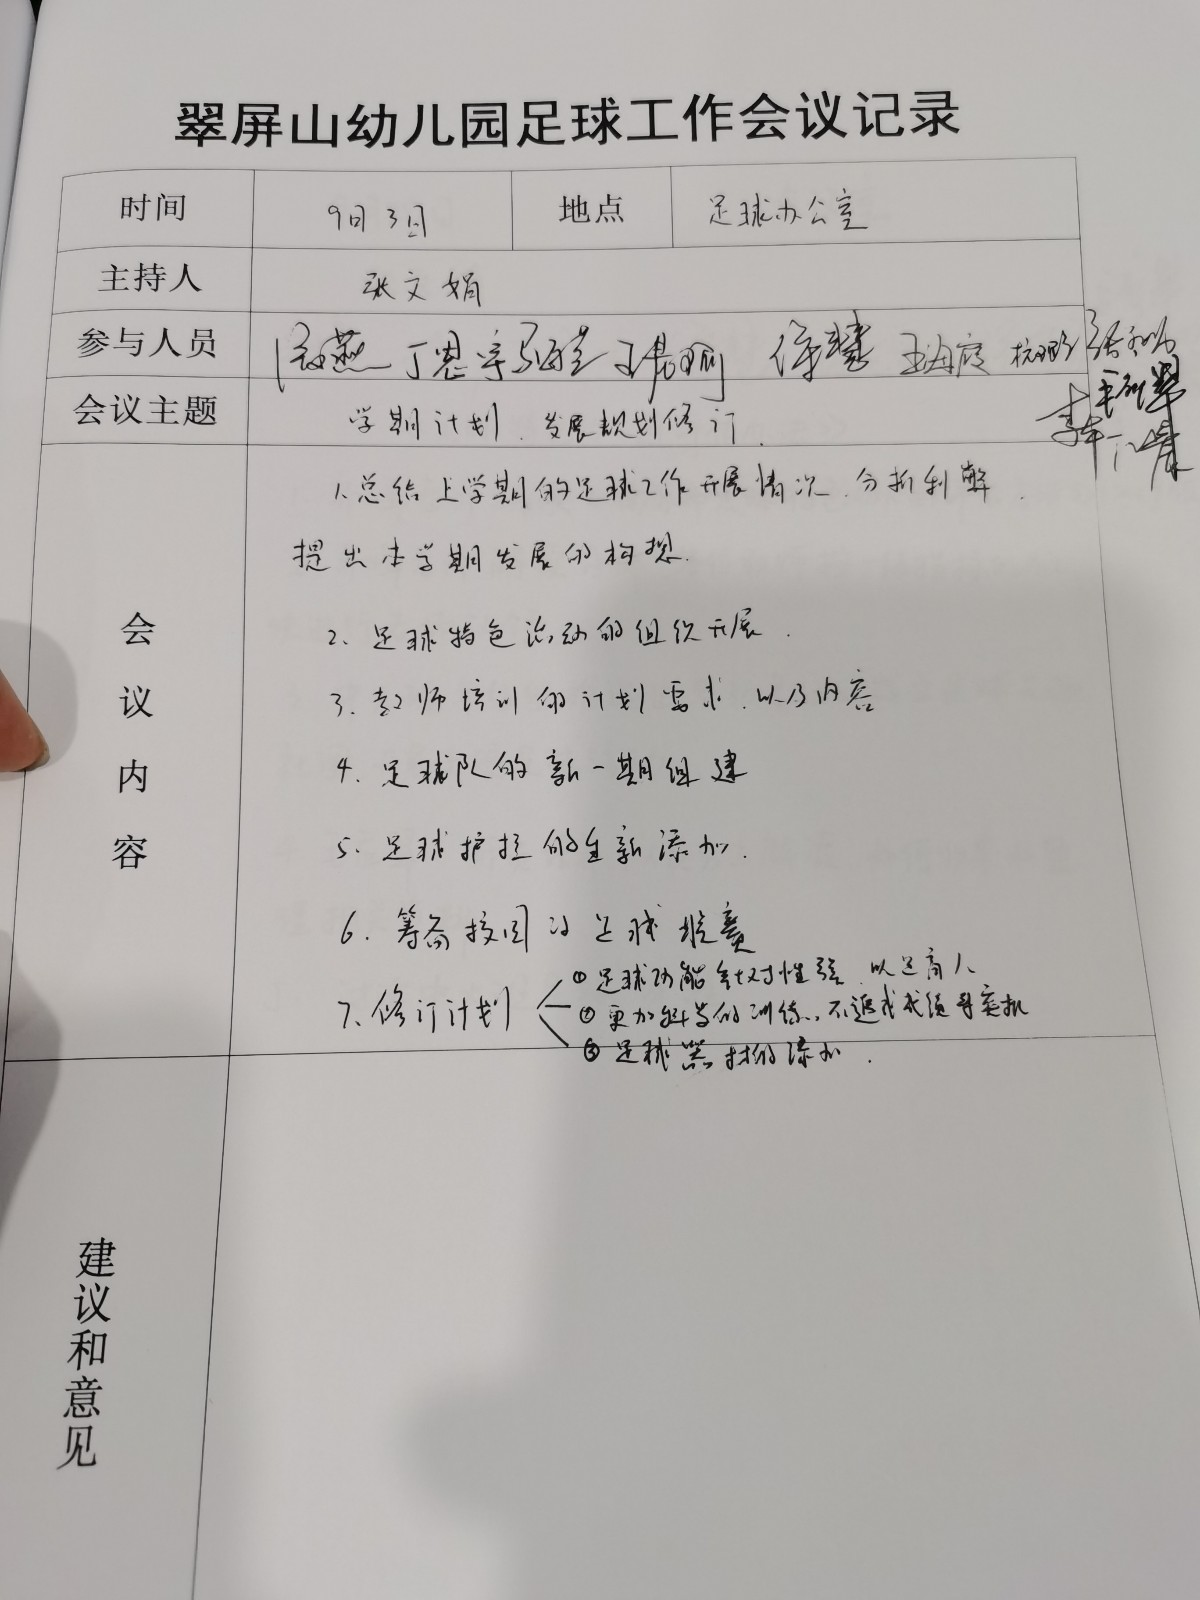 翠屏山幼儿园足球工作会议记录
时间 9月3日 地点 足球办公室
主持人 张文娟
参与人员 丁恩宇 徐慧
会议主题 学期计划、发展规划修订.
会议内容
1、总结上学期的足球工作开展情况、分析利弊、
提出本学期发展的构想.
2、足球特色活动的组织开展.
3、教师培训的计划需求、以及内容
4、足球队的新一期组建
5、足球护栏的全新添加.
6、筹备校园的足球竞赛
7、修订计划
① 足球功能针对性强、以足育人
② 更加科学的训练、不追求成绩
③ 足球器材的添加.
建议和意见